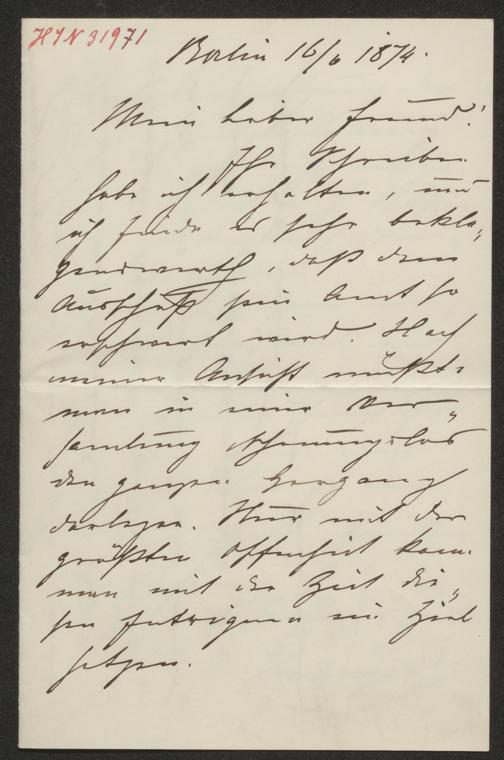 HIN 31971
Berlin 16/6 1874.
Mein lieber Freund!
Ihr Schreiben
habe ich erhalten, und
ich finde es sehr bekla„
genswerth, daß dem
Ausschuß sein Amt so
erschwert wird. Nach
meiner Ansicht müßte
man in einer Ver„
samlung schonungslos
den ganzen Hergang
darlegen. Nur mit der
größten Offenheit kann
man mit der Zeit die„
sen Intriguen ein Ziel
setzen.